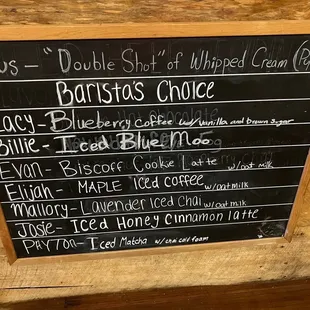 us - "Double Shot" of Whipped Cream (Pu
Barista's Choice
Lacy - Blueberry Coffee w/vanilla and brown sugar
Billie - Iced Blue Moo
Evan - Biscoff Cookie Latte w/oat milk
Elijah - MAPLE Iced coffee w/oatmilk
Mallory - Lavender Iced Chai w/oatmilk
Josie - Iced Honey Cinnamon latte
PAYTON - Iced Matcha w/chai cold foam